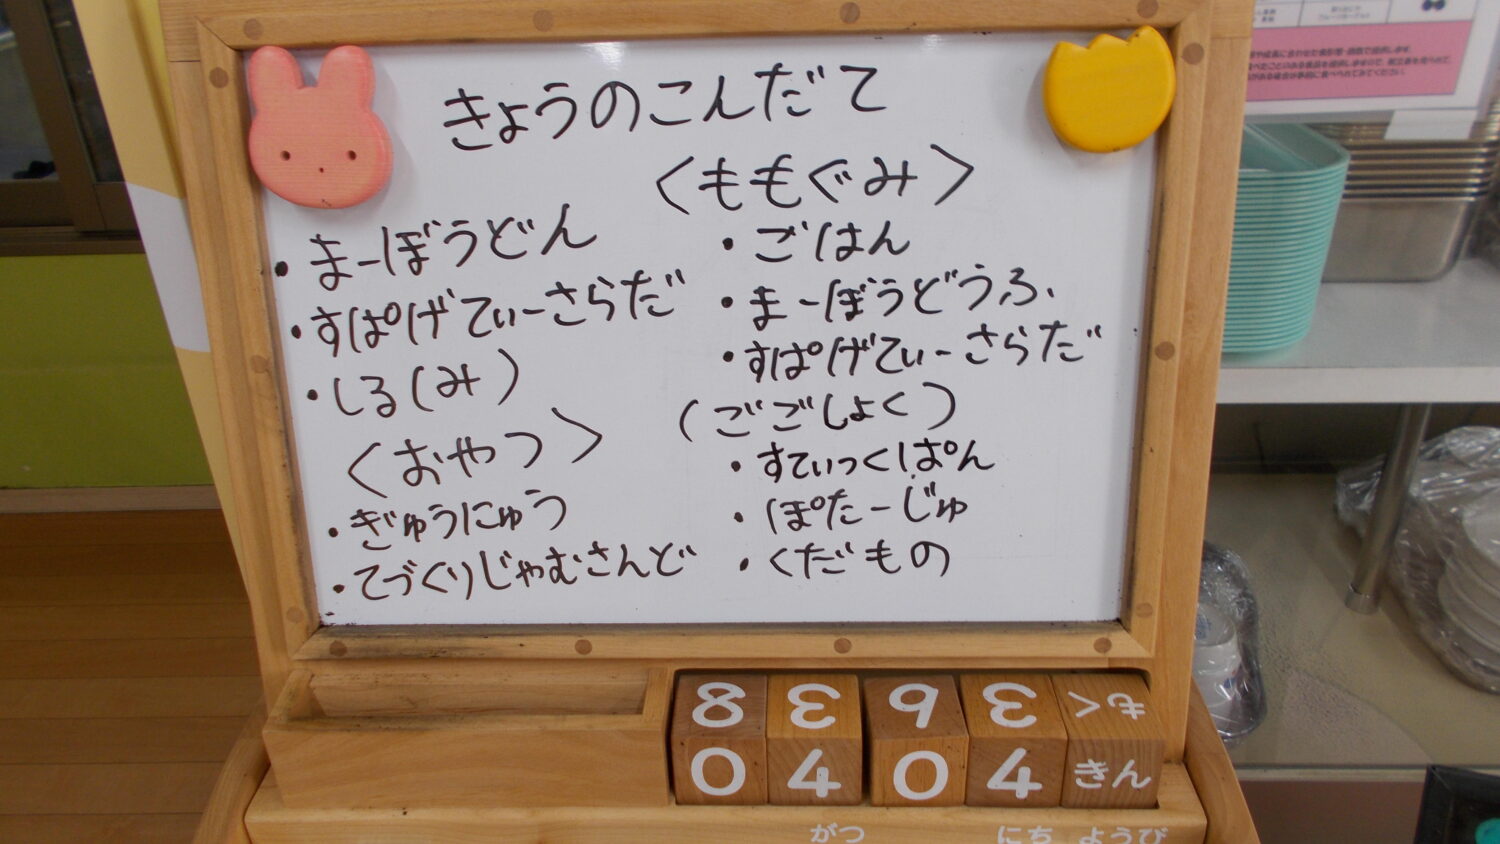 きょうのこんだて
・まーぼうどん
・すぱげてぃーさらだ
・しる(み)
<おやつ>
・ぎゅうにゅう
・てづくりじゃむさんど
<ももぐみ>
・ごはん
・まーぼうどうふ
・すぱげてぃーさらだ
(ごごしょく)
・すてぃっくぱん
・ぽたーじゅ
・くだもの
8 3 9 3 もく
0 4 0 4 きん
がつ にち ようび